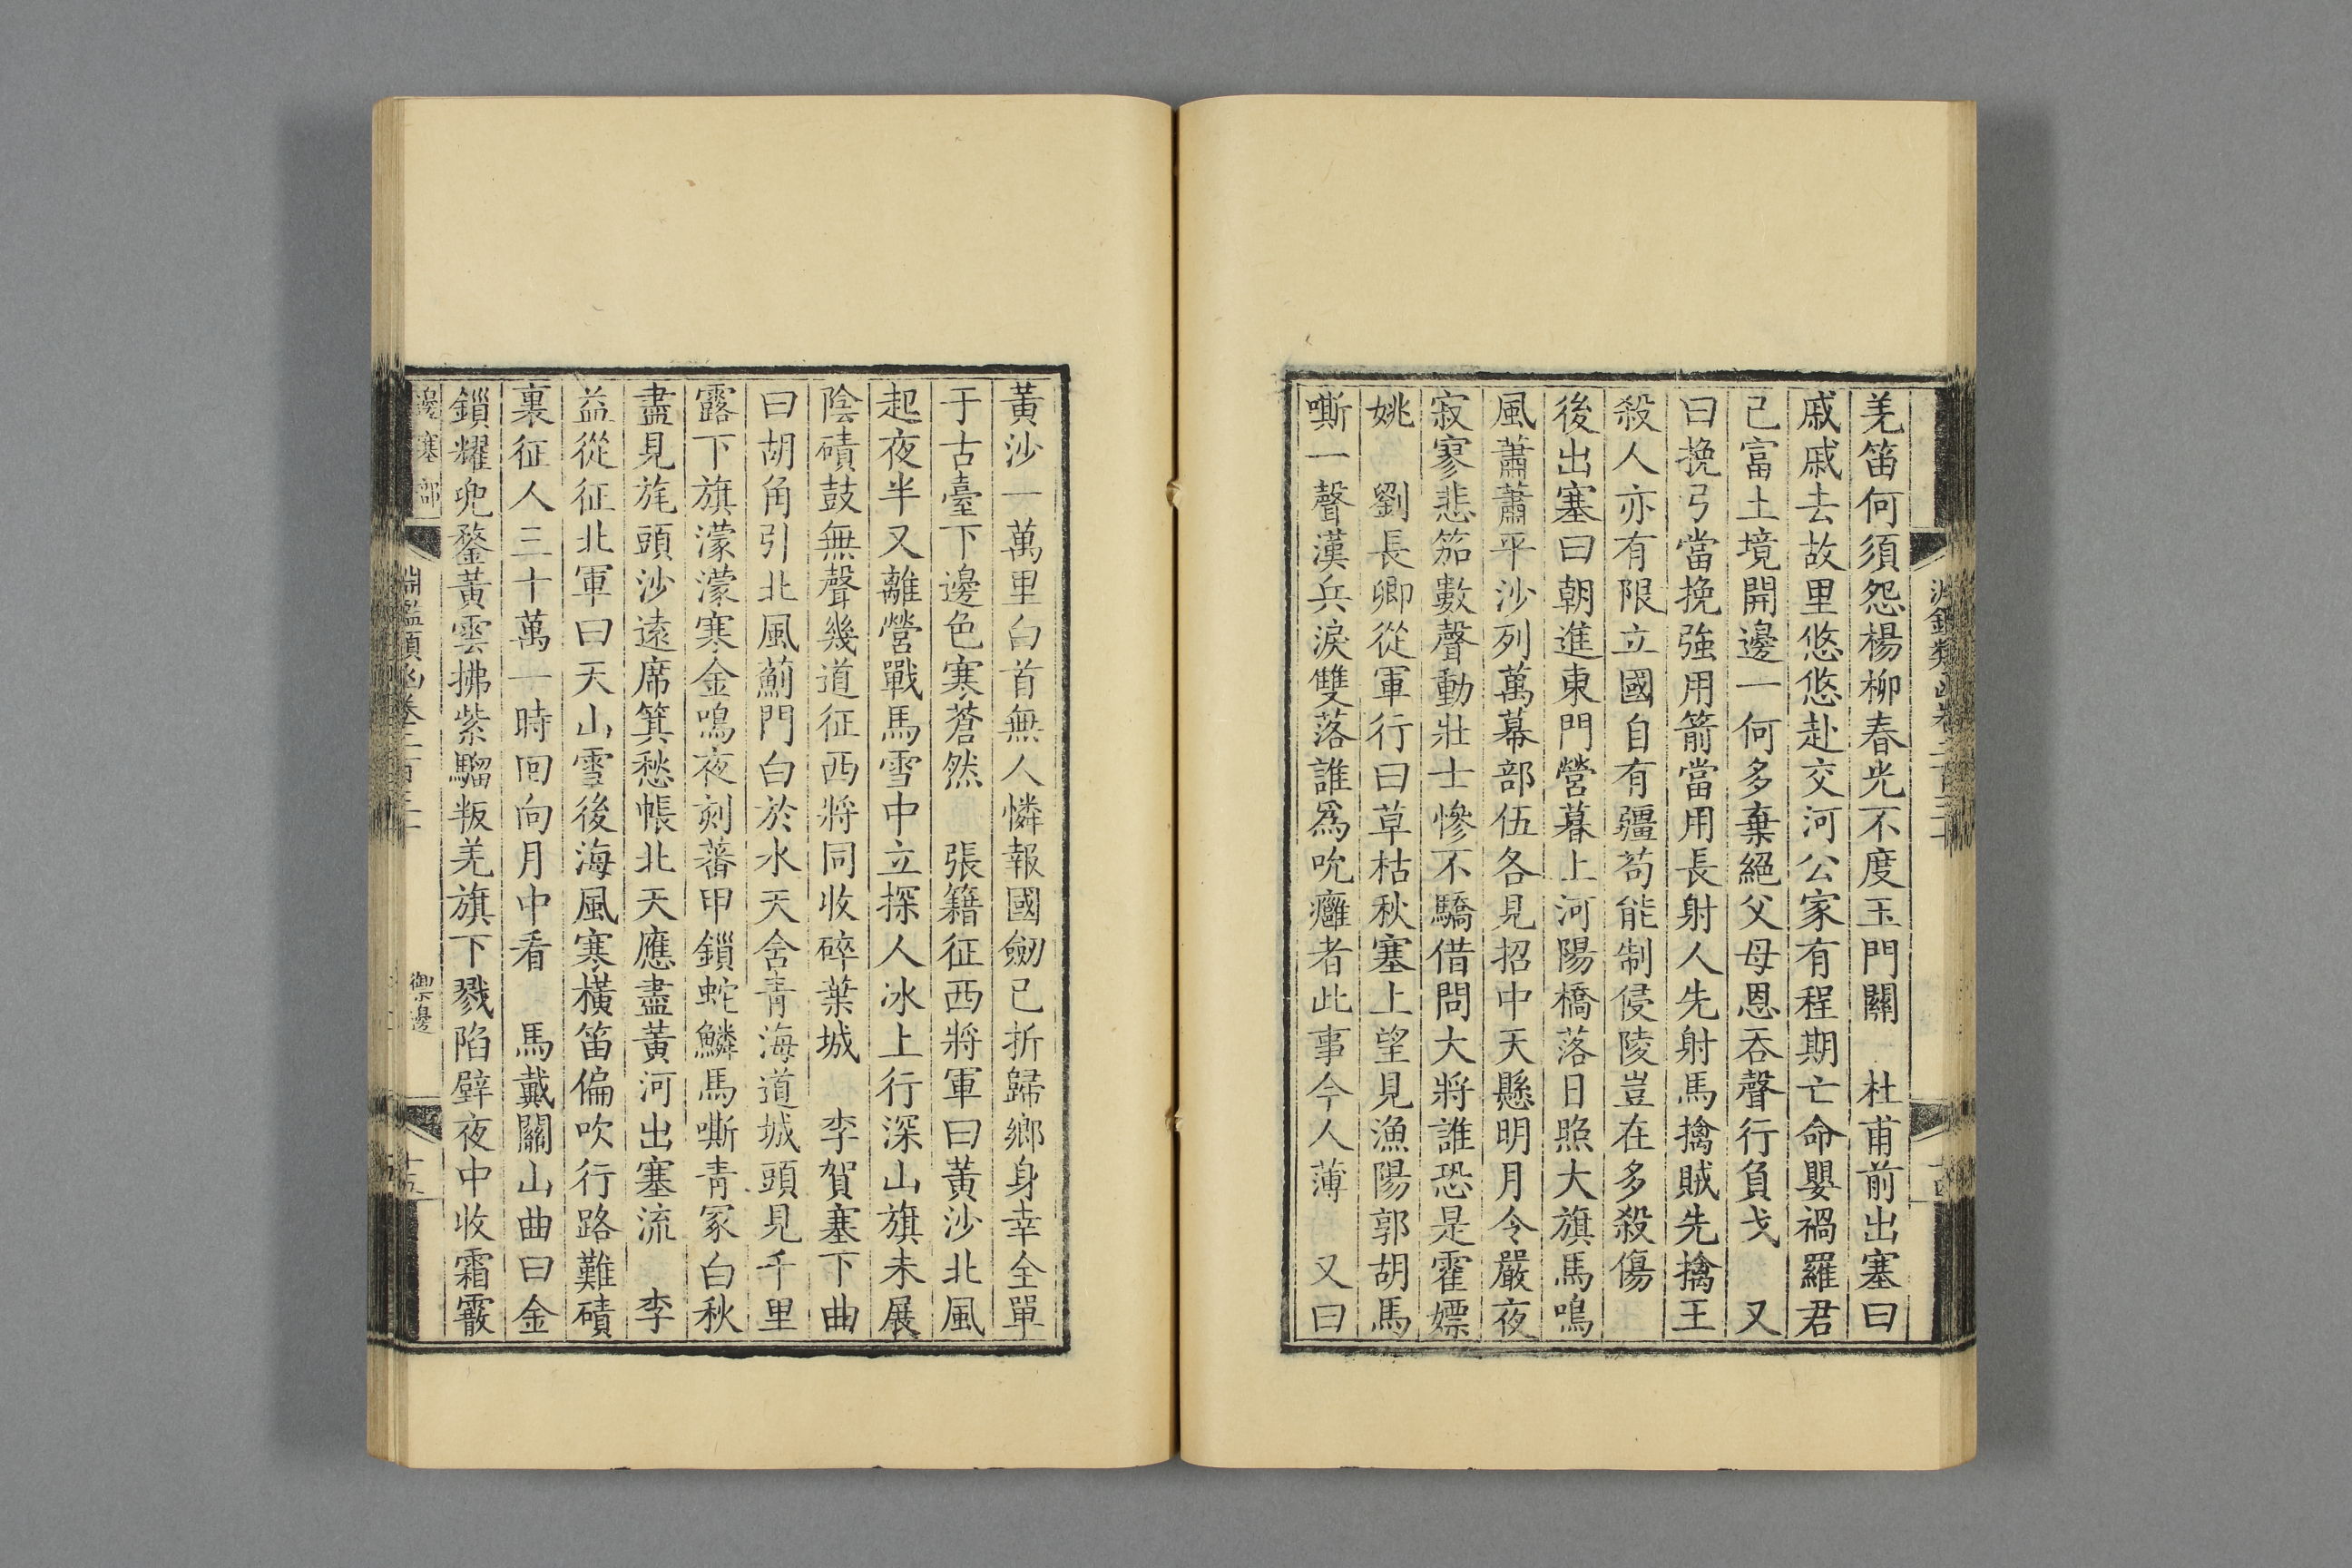 羌笛何須怨楊柳春光不度玉門關　杜甫前出塞曰
戚戚去故里悠悠赴交河公家有程期亡命嬰禍羅君
已富土境開邊一何多棄絕父母恩吞聲行負戈　又
曰挽弓當挽強用箭當用長射人先射馬擒賊先擒王
殺人亦有限立國自有疆苟能制侵陵豈在多殺傷
後出塞曰朝進東門營暮上河陽橋落日照大旗馬鳴
風蕭蕭平沙列萬幕部伍各見招中天懸明月令嚴夜
寂寥悲笳數聲動壯士慘不驕借問大將誰恐是霍嫖
姚　劉長卿從軍行曰草枯秋塞上望見漁陽郭胡馬
嘶一聲漢兵淚雙落誰爲吮癰者此事今人薄　又曰
黃沙一萬里白首無人憐報國劒已折歸鄉身幸全單
于古臺下邊色寒蒼然　張籍征西將軍曰黃沙北風
起夜半又離營戰馬雪中立探人冰上行深山旗未展
陰磧鼓無聲幾道征西將同收碎葉城　李賀塞下曲
曰胡角引北風薊門白於水天含青海道城頭見千里
露下旗濛濛寒金鳴夜刻蕃甲鎖蛇鱗馬嘶青冢白秋
盡見旄頭沙遠席箕愁帳北天應盡黃河出塞流　李
益從征北軍曰天山雪後海風寒橫笛偏吹行路難磧
裏征人三十萬一時回向月中看　馬戴關山曲曰金
鎖耀兜鍪黃雲拂紫騮叛羌旗下戮陷壁夜中收霜霰
邊塞部
淵鑑類函卷二百三十
御邊
十五